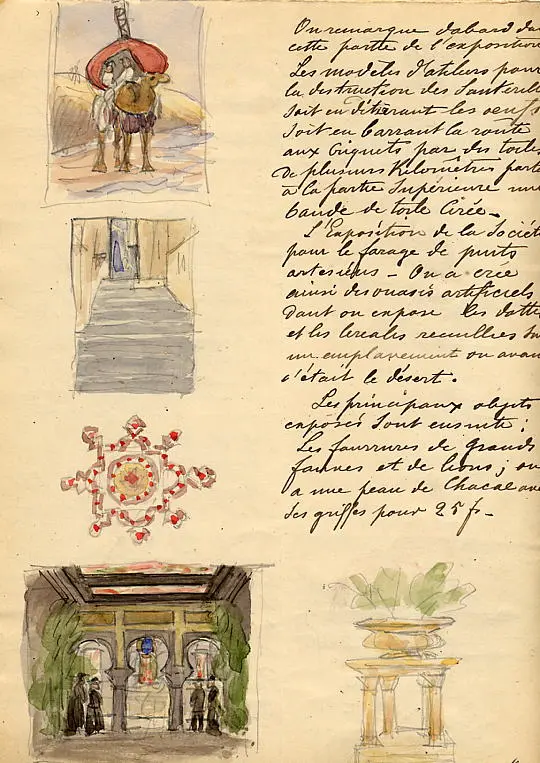 On remarque d'abord da
cette partie de l'exposition
Les modèles d'ateliers pour
la destruction des Sauterelle
soit en détérant les oeufs
soit en barrant la route
aux Criquets par des toiles
de plusieurs Kilomètres porta
à la partie Supérieure une
bande de toile Cirée_
L'Exposition de la Sociét
pour le forage de puits
artesiens _ On a crée
ainsi des ouasis artificiels
dont on expose les datte
et les cereales recueillies su
un emplavement ou avan
c'était le désert.
Les principaux objets
exposés Sont ensuite :
Les fourrures de grands
fauves et de lions ; on
a une peau de Chacal av
ses griffes pour 25 f_